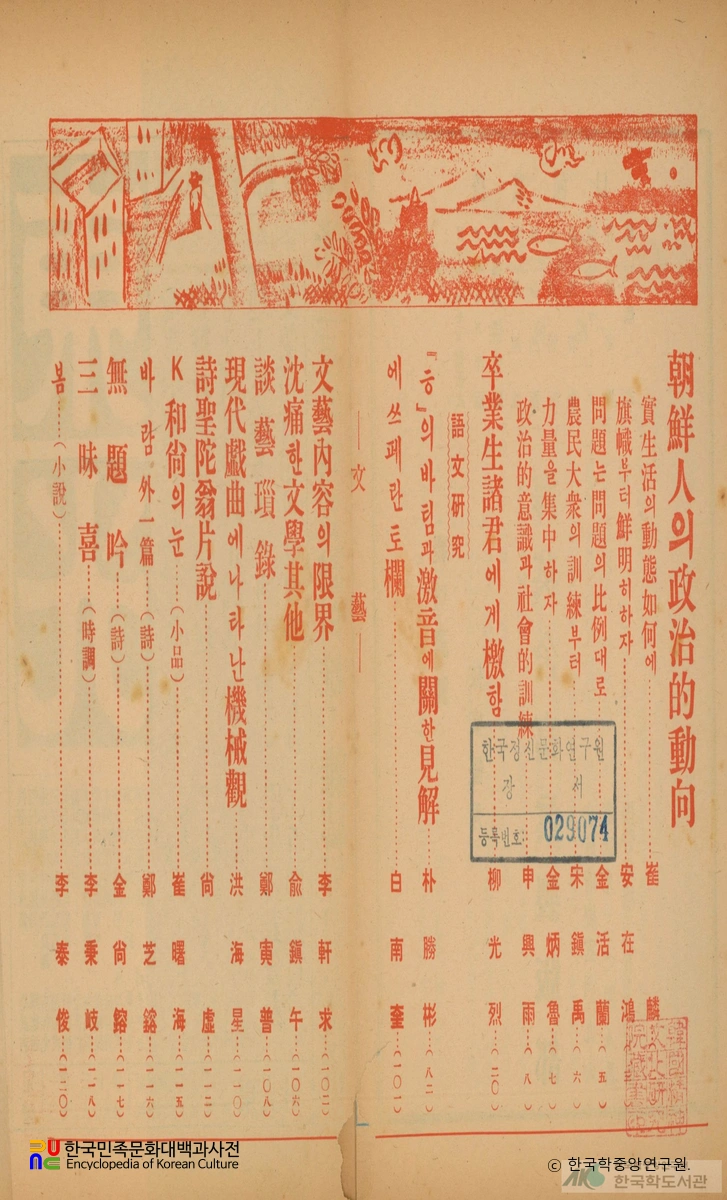 朝鮮人의政治的動向
實生活의動態如何에……崔 麟
旗幟부터鮮明히하자……安在鴻
問題는問題의比例대로……金活蘭(五)
農民大衆의訓練부터……宋鎭禹(六)
力量을集中하자……金炳魯(七)
政治的意識과社會的訓練……申興雨(八)
卒業生諸君에게檄함……柳光烈(二〇)
語文硏究
『ㅎ』의바팀과激音에關한見解……朴勝彬(八二)
에쓰페란토欄……白南奎(一〇一)
—文 藝—
文藝內容의限界……李軒求(一〇二)
沈痛한文學其他……兪鎭午(一〇六)
談藝瑣錄……鄭寅普(一〇八)
現代戱曲에나타난機械觀……洪海星(一一〇)
詩聖陀翁片說……尙虛(一一二)
K和尙의눈……(小品)……崔曙海(一一五)
바람外一篇……(詩)……鄭芝鎔(一一六)
無題吟……(詩)……金尙鎔(一一七)
三昧喜……(時調)……李秉岐(一一八)
봄……(小說)……李泰俊(一二〇)
한국정신문화연구원
장 서
등록번호: 029074
한국민족문화대백과사전
Encyclopedia of Korean Culture
© 한국학중앙연구원.
한국학도서관